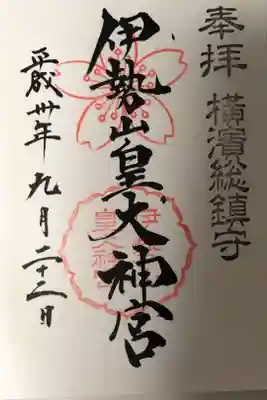 奉拝 横濱総鎮守
伊勢山皇大神宮
平成卅年九月二十二日